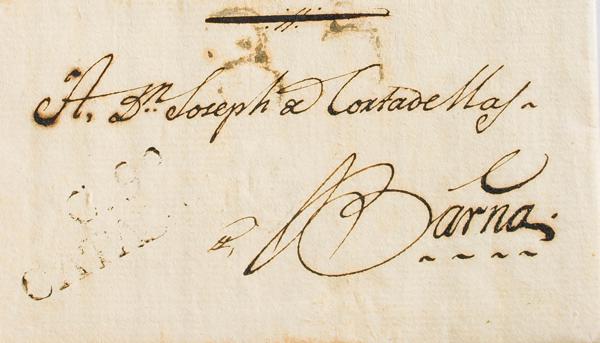 A, Dn Joseph de Cortadellas
Barna.